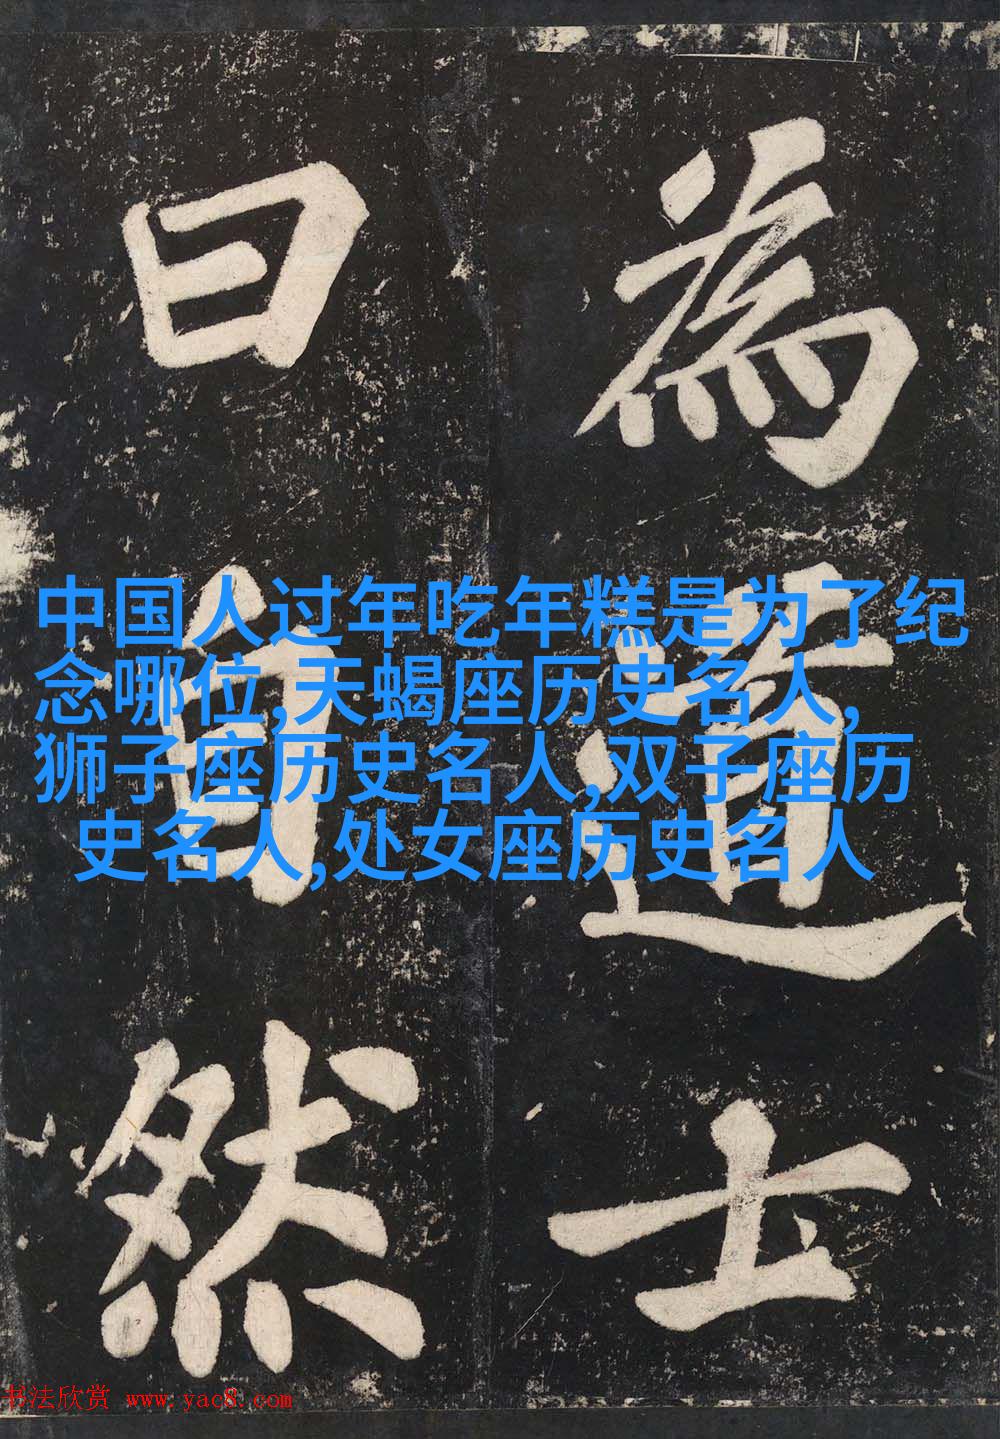 為道士
曰自然
中国人过年吃年糕是为了纪
念哪位,天蝎座历史名人,
狮子座历史名人,双子座历
史名人,处女座历史名人
书法欣赏 www.yac8.com